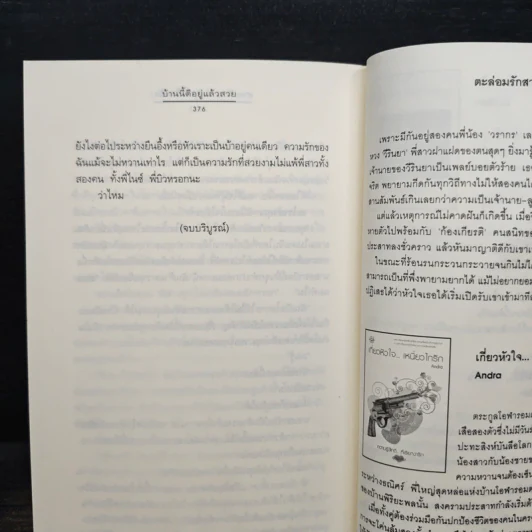 บ้านนี้ดีอยู่แล้วสวย
376
ยังไงต่อไประหว่างยืนอึ้งหรือหัวเราะเป็นบ้าอยู่คนเดียว ความรักของ
ฉันแม้จะไม่หวานเท่าไร แต่ก็เป็นความรักที่สวยงามไม่แพ้พี่สาวทั้ง
สองคน ทั้งพี่ไนซ์ พี่บิวหรอกนะ
ว่าไหม
(จบบริบูรณ์)
ตะล่อมรักสา
เพราะมีกันอยู่สองคนพี่น้อง 'วรากร' เล
หวง 'วีรินยา' พี่สาวฝาแฝดของตนสุดๆ ยิ่งมารู้
เจ้านายของวีรินยาเป็นเพลย์บอยตัวร้าย เธอ
จริต พยายามกีดกันทุกวิถีทางไม่ให้สองคนใ
สานสัมพันธ์เกินเลยกว่าความเป็นเจ้านาย-ลู
แต่แล้วเหตุการณ์ไม่คาดฝันก็เกิดขึ้น เมื่อ
หายตัวไปพร้อมกับ 'ก้องเกียรติ' คนสนิทขอ
ประสาทลงชั่วคราว แล้วหันมาญาติดีกับเขาเ
ในขณะที่ร้อนรนกระวนกระวายจนกินไม่ไ
สามารถเป็นที่พึ่งพายามยากได้ แม้ไม่อยากยอม
ปฏิเสธได้ว่าหัวใจเธอได้เริ่มเปิดรับเขาเข้ามาที
เกี่ยวหัวใจ... เหนี่ยวไกรัก
Andra
เกี่ยวหัวใจ...
Andra
ตระกูลโอฬารอม
เสือสองตัวซึ่งไม่มีวัน
ปะทะสิงห์บันลือโลก
น้องสาวกับน้องชายข
ความหวานจนต้องเซ็น
ระหว่างธณิศร์ พี่ใหญ่สุดหล่อแห่งบ้านโอฬารอม
ของบ้านพิริยะพลนั้น สงครามประสาทกำลังเริ่มต้
เมื่อทั้งคู่ต้องร่วมมือกันปกป้องชีวิตของคนในคร